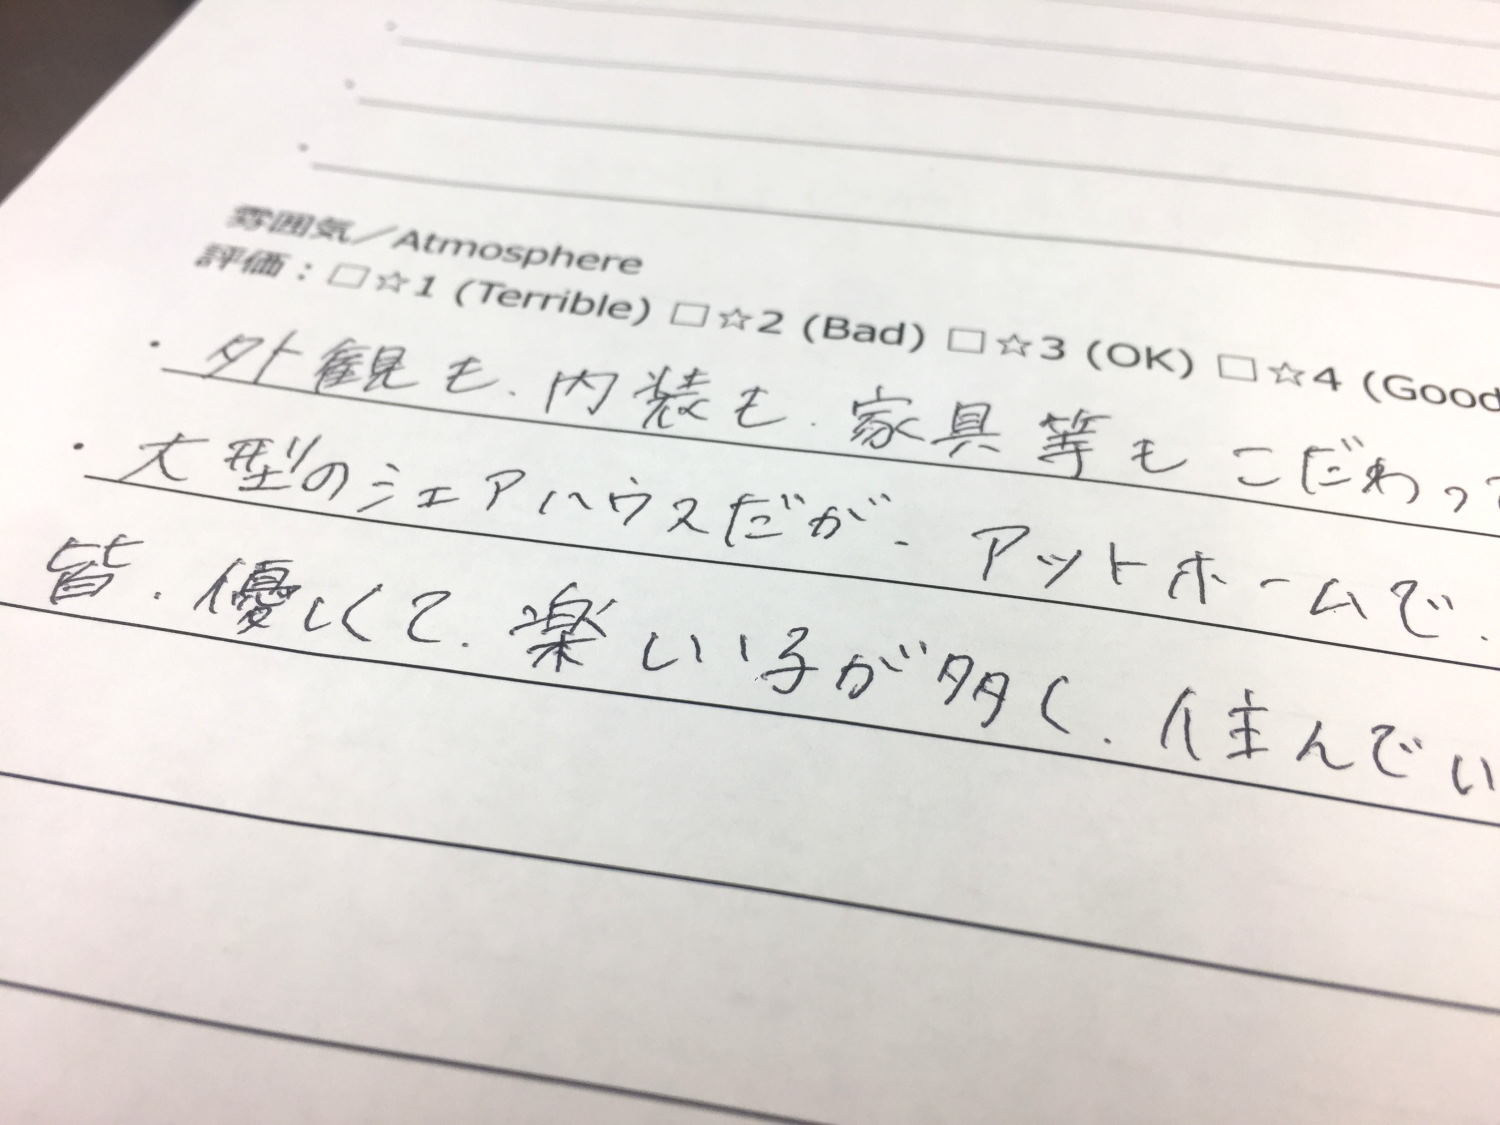 雰囲気／Atmosphere
評価：□☆1 (Terrible) □☆2 (Bad) □☆3 (OK) □☆4 (Good
・外観も、内装も、家具等もこだわって
・大型のシェアハウスだが、アットホームで、
皆、優しくて、楽しい子が多く、住んでい